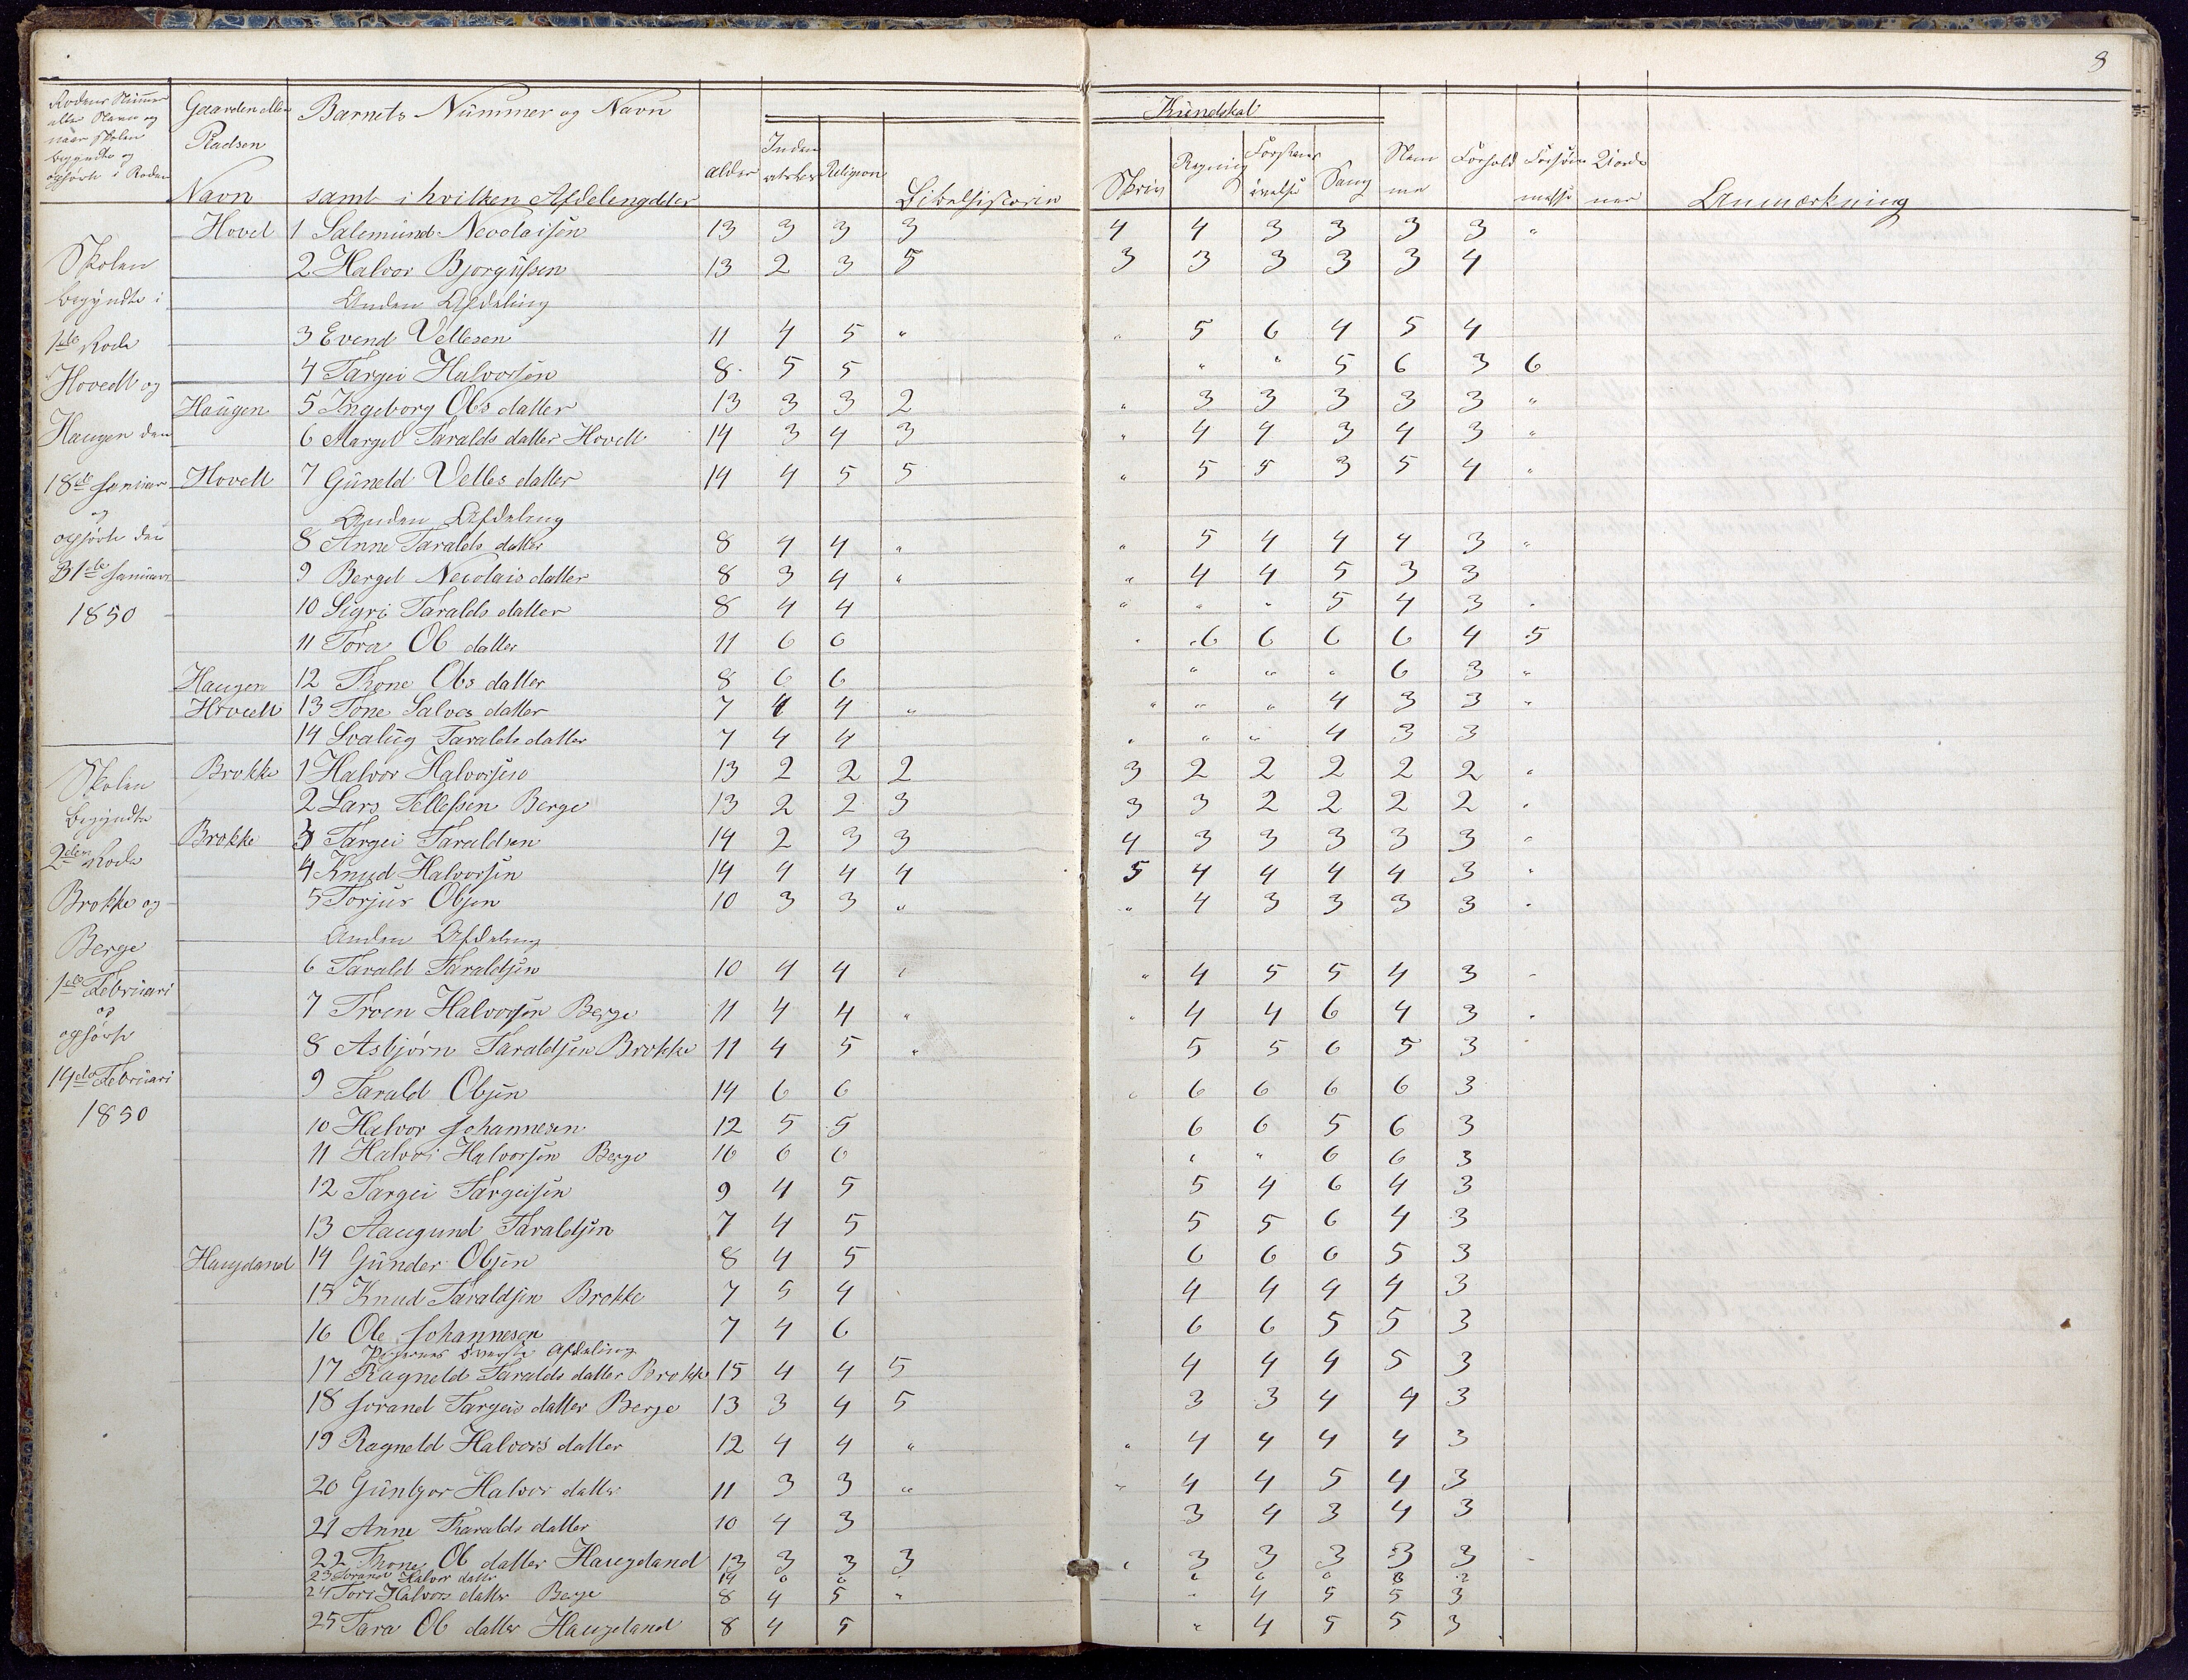 3
Rodens Nummer eller Navn og naar Skolen begyndte og ophørte i Roden
Gaarden eller Pladsen Navn
Barnets Nummer og Navn samt i hvilken Afdeling
alder
Kundskab
Religion
Bibelhistorie
Skriv
Regning
Sang
Forhold
Anmærkning
Skolen begyndte i 1ste Rode Hovedt og Haugen den 18de Januar og ophørte den 31de Januar 1850
Hovet 1 Salemund Necolaisen 13 3 3 3 4 4 3 3 3 3 "
2 Halvor Bjorgufsen 13 2 3 5 3 3 3 3 3 4
Anden Afdeling
3 Evend Vellesen 11 4 5 " " 5 6 4 5 4
4 Targei Halvorsen 8 5 5 " " 5 6 3 6
Haugen 5 Ingeborg Obs datter 13 3 3 2 " 3 3 3 3 3 "
6 Margit Taralds datter Hovett 14 3 4 3 " 4 4 3 4 3 "
Hovett 7 Guneld Velles datter 14 4 5 5 " 5 5 3 5 4 "
Anden Afdeling
8 Anne Taralds datter 8 4 4 " " 5 4 4 4 3 "
9 Berget Necolais datter 8 3 4 " " 4 4 5 3 3
10 Sigri Taralds datter 8 4 4 " " " 5 4 3 "
11 Tora Ob datter 11 6 6 " 6 6 6 6 4 5
Haugen 12 Thone Obs datter 8 6 6 " " " 6 3 "
Hovett 13 Tone Salves datter 7 4 4 " " " " 4 3 3 "
14 Svalug Taralds datter 7 4 4 " " " 4 3 3
Skolen begyndte 2den Rode Brokke og Berge 1ste Februari og ophørte 14de Februari 1850
Brokke 1 Halvor Halvorsen 13 2 2 2 3 2 2 2 2 2 "
2 Lars Tellefsen Berge 13 2 2 3 3 3 2 2 2 2 "
Brokke 3 Targei Taraldsen 14 2 3 3 4 3 3 3 3 3 "
4 Knud Halvorsen 14 4 4 4 5 4 4 4 4 3 "
5 Torjus Obsen 10 3 3 " " 4 3 3 3 3 "
Anden Afdeling
6 Tarald Taraldsen 10 4 4 " " 4 5 5 4 3 "
7 Troen Halvorsen Berge 11 4 4 " " 4 4 6 4 3 "
8 Asbjørn Taraldsen Brokke 11 4 5 " 5 5 6 5 3
9 Tarald Obsen 14 6 6 " 6 6 6 6 3
10 Halvor Johannesen 12 5 5 6 6 5 6 3
11 Halvor Halvorsen Berge 10 6 6 " " 6 6 3
12 Targei Targeisen 9 4 5 5 4 6 4 3
13 Aaugund Taraldsen 7 4 5 5 5 6 4 3
Haugeland 14 Gunder Obsen 8 4 5 6 6 6 5 3
15 Knud Taraldsen Brokke 7 5 4 4 4 4 4 3
16 Ole Johannesen 7 4 6 6 6 5 5 3
Pigernes Afdeling
17 Ragneld Taralds datter Brokke 15 4 4 5 4 4 4 5 3
18 Jorand Targeis datter Berge 13 3 4 5 3 3 4 4 3
19 Ragneld Halvors datter 12 4 4 " " 4 4 4 4 3
20 Gunbjor Halvor datter 11 3 3 " " 4 4 5 4 3
21 Anne Tharalds datter 10 4 3 3 4 3 4 3
22 Thone Ob datter Haugeland 13 3 3 3 " 3 3 3 3 3 "
23 Jorand Halvor datter 14
24 Tore Halvors datter Berge 8 4 5 " " 4 5 5 3
25 Tara Ob datter Haugeland 8 4 5 " 4 5 5 3